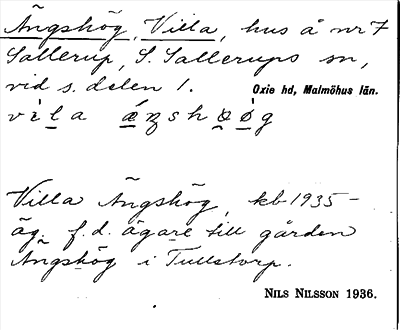 Ängshög, Villa, hus å nr 7
Sallerup, S. Sallerups sn,
vid s. delen 1. Oxie hd, Malmöhus län.
Villa Ängshög, kb 1935 –
äg. f.d. ägare till gården
Ängshög i Tullstorp.
NILS NILSSON 1936.